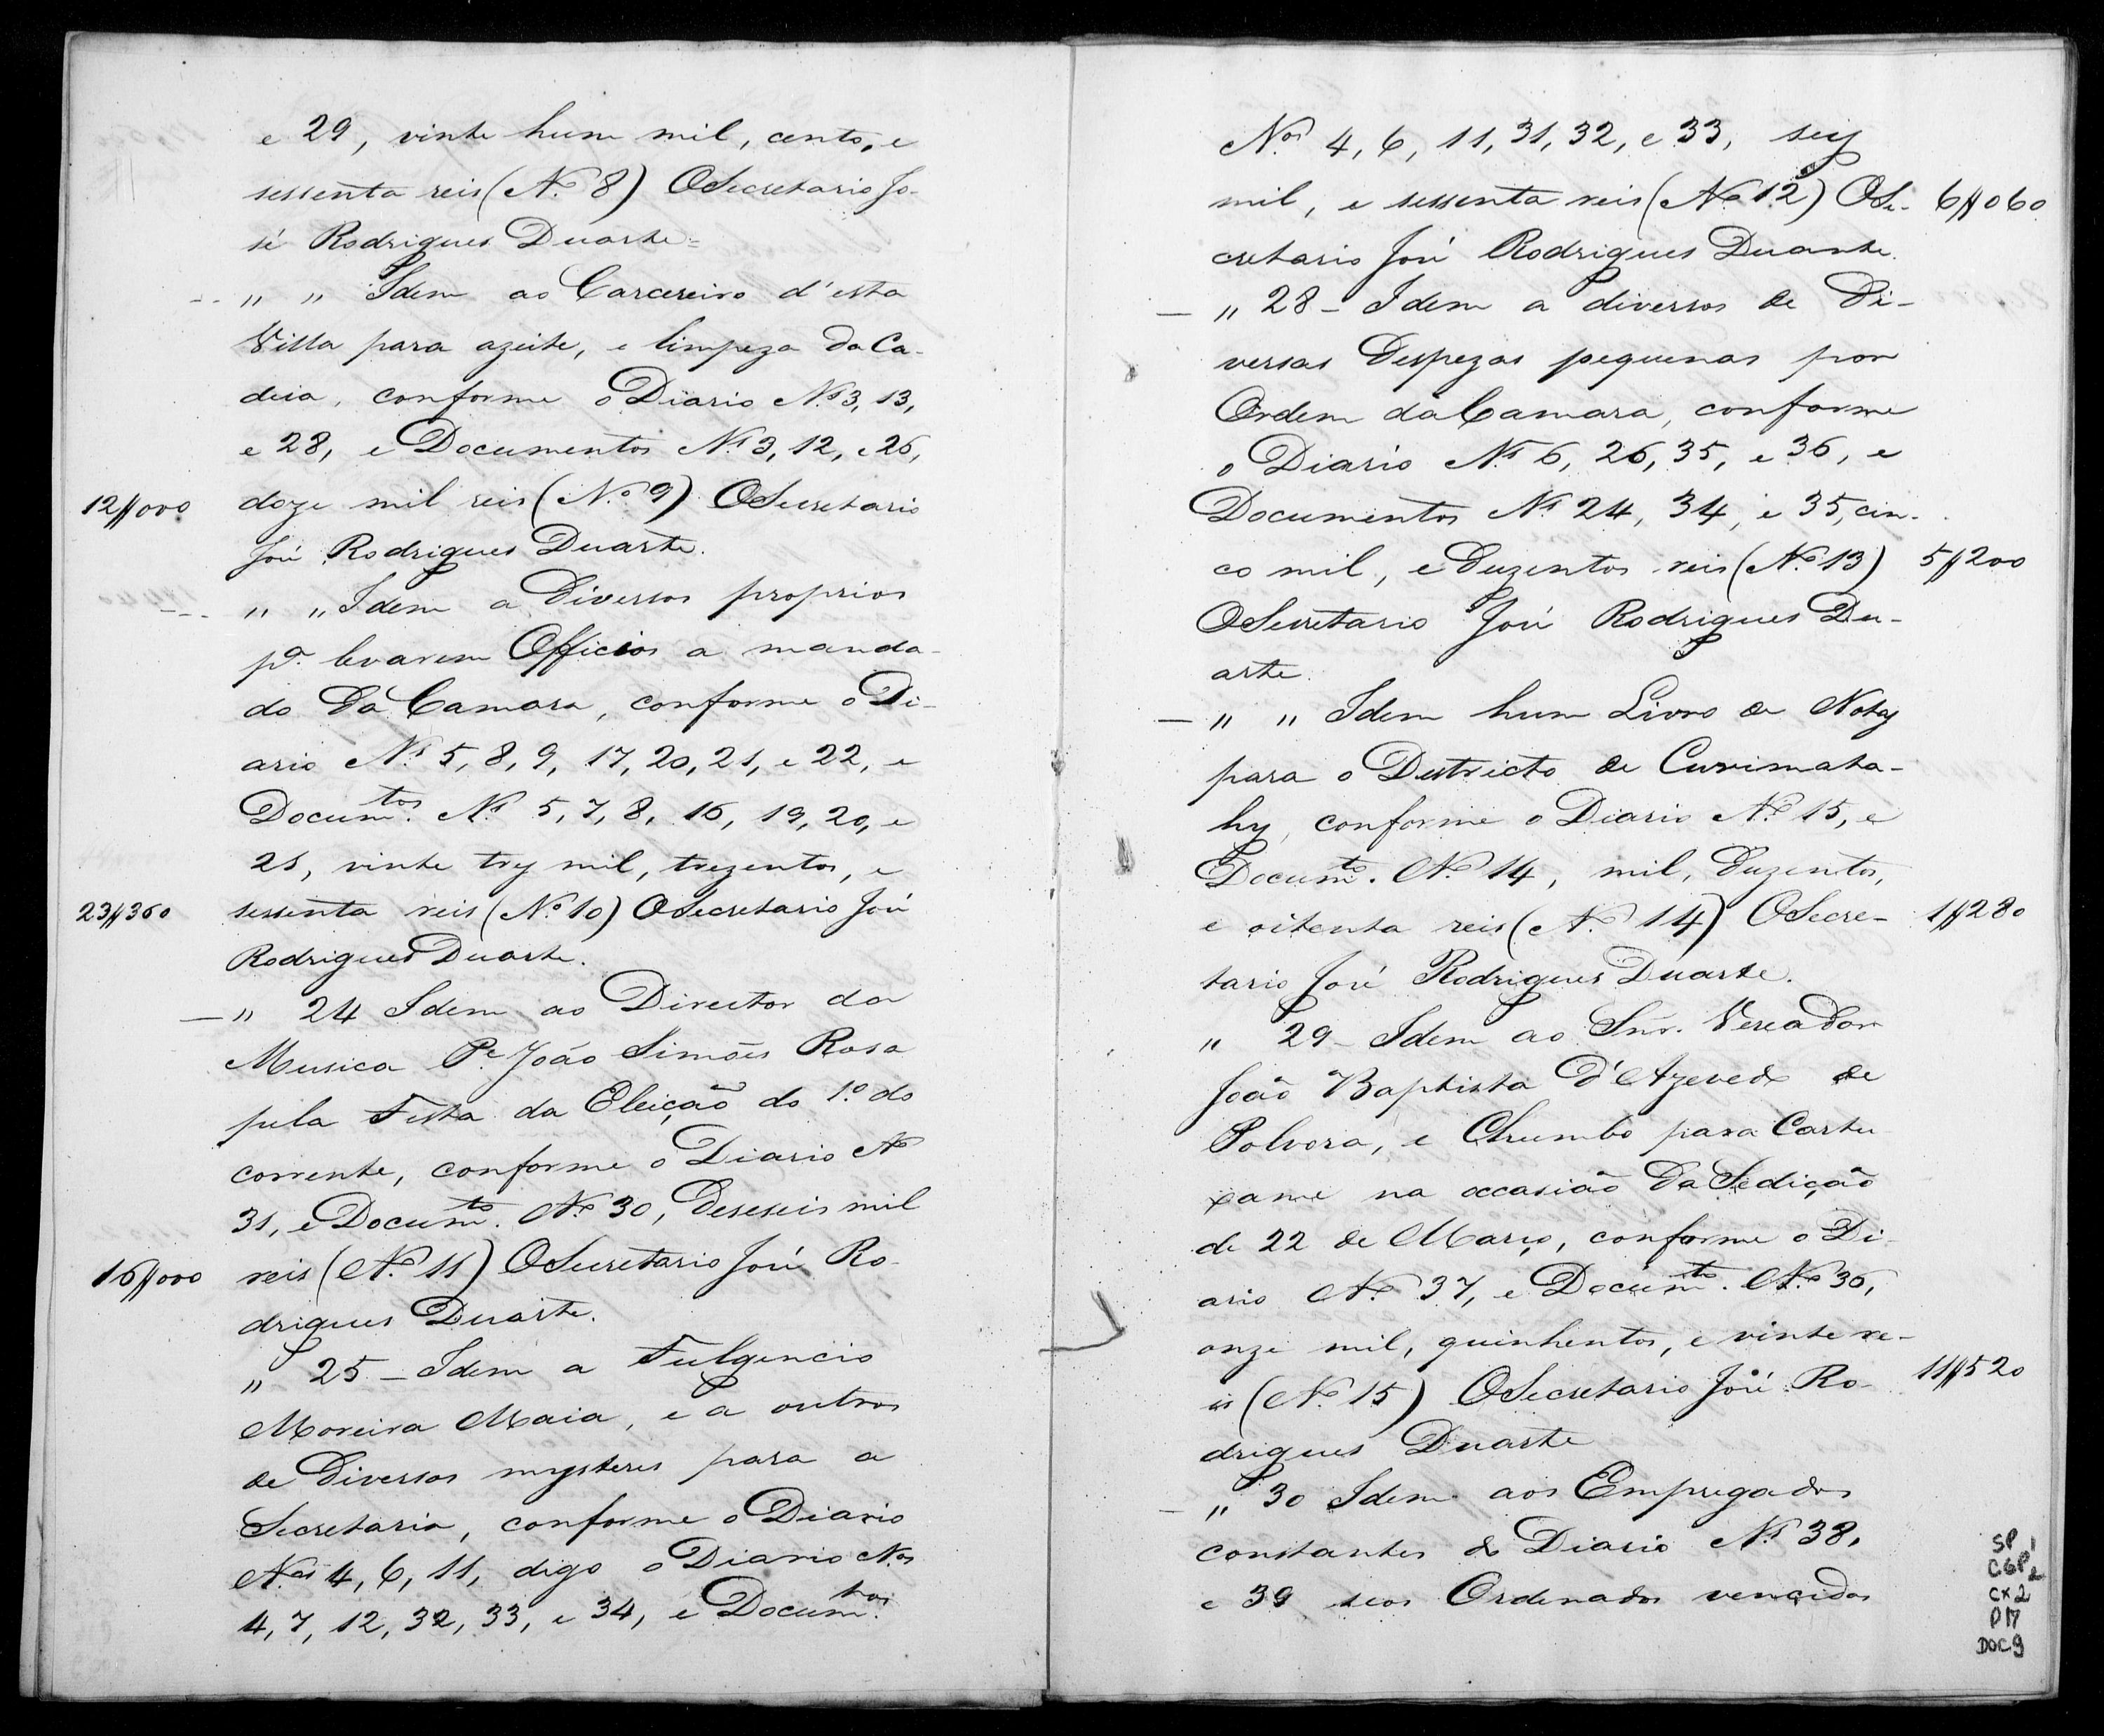 e 29, vinte hum mil, cento, e
sessenta reis (N.º 8) O Secretario Jo-
sé Rodrigues Duarte=
" " Idem ao Carcereiro d'esta
Villa para azeite, e limpeza da Ca-
deia, conforme o Diario N.ºs 3, 13,
e 28, e Documentos N.ºs 3, 12, e 26,
12$000 doze mil reis (N.º 9) O Secretario
José Rodrigues Duarte.
" " Idem a Diversos proprios
p.ª levarem Officios a manda-
do da Camara, conforme o Di-
ario N.ºs 5, 8, 9, 17, 20, 21, e 22, e
Docum.tos N.ºs 5, 7, 8, 16, 19, 20, e
21, vinte trez mil, trezentos, e
23$360 sessenta reis (N.º 10) O Secretario José
Rodrigues Duarte.
" 24 Idem ao Director da
Musica P.e João Simões Rosa
pela Festa da Eleição do 1.º do
corrente, conforme o Diario Nº
31, e Docum.to Nº 30, Deseseis mil
16$000 reis (N.º 11) O Secretario José Ro-
drigues Duarte.
" 25 - Idem a Fulgencio
Moreira Maia, e a outros
de Diversos mysteres para a
Secretaria, conforme o Diario
N.os 4, 6, 11, digo o Diario N.os
4, 7, 12, 32, 33, e 34, e Docum.tos
N.os 4, 6, 11, 31, 32, e 33, seis
mil, e sessenta reis (Nº 12) O Se- 6$060
cretario José Rodrigues Duarte.
" 28 - Idem a diversos de Di-
versas Despezas pequenas por
Ordem da Camara, conforme
o Diario N.ºs 6, 26, 35, e 36, e
Documentos N.ºs 24, 34, e 35, cin-
co mil, e Duzentos reis (N.º 13) 5$200
O Secretario José Rodrigues Du-
arte.
" " Idem hum Livro de Notas
para o Destricto de Curimata-
hy, conforme o Diario N.º 15, e
Docum.to Nº 14, mil, Duzentos,
e oitenta reis (N.º 14) O Secre- 1$280
tario José Rodrigues Duarte.
" 29 - Idem ao Snr. Vereador
João Baptista d'Azevedo de
Polvora, e Chumbo para Cartu
xame na occasião da Sedição
de 22 de Março, conforme o Di-
ario N.º 37, e Docum.to N.º 36,
onze mil, quinhentos, e vinte re-
is (N.º 15) O Secretario José Ro- 11$520
drigues Duarte
" 30 Idem aos Empregados
constantes do Diario N.ºs 38,
e 39 seos Ordenados vencidos
SP
CGP
CX2
DOC9